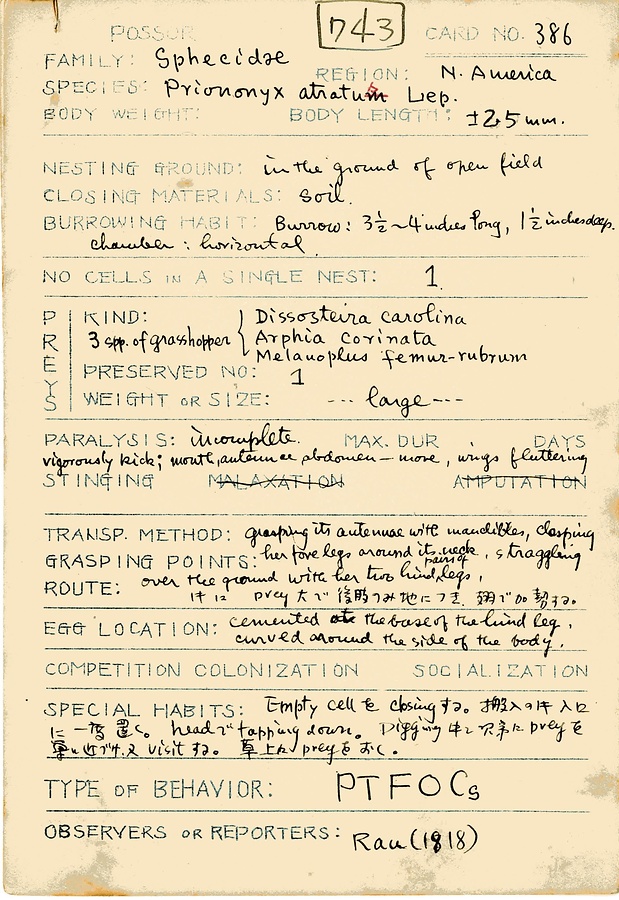 POSSOR 743 CARD NO. 386
FAMILY: Sphecidae
REGION: N. America
SPECIES: Priononyx atratum Lep.
BODY WEIGHT: BODY LENGTH: ±25 mm.
NESTING GROUND: in the ground of open field
CLOSING MATERIALS: soil.
BURROWING HABIT: Burrow: 3½~4 inches long, 1½ inches deep.
chamber: horizontal.
NO CELLS IN A SINGLE NEST: 1.
PREYS
KIND: Dissosteira carolina
3 spp. of grasshopper { Arphia corinata
Melanoplus femur-rubrum
PRESERVED NO: 1
WEIGHT OR SIZE: --- large ---
PARALYSIS: incomplete. MAX. DUR DAYS
vigorously kick; mouth, antennae, abdomen - move, wings fluttering
STINGING MALAXATION AMPUTATION
TRANSP. METHOD: grasping its antennae with mandibles, clasping
GRASPING POINTS: her fore legs around its neck, straggling
ROUTE: over the ground with her two pairs of hind legs,
prey 大で 後脚のみ地につき 翅で加勢する.
EGG LOCATION: cemented the base of the hind leg,
curved around the side of the body.
COMPETITION COLONIZATION SOCIALIZATION
SPECIAL HABITS: Empty cell を closing する. 搬入の時入口
に一度置く. head で tapping down. Digging 中に prey を
visit する. 草上に prey をおく.
TYPE OF BEHAVIOR: PTFOCs
OBSERVERS OR REPORTERS: Rau (1918)